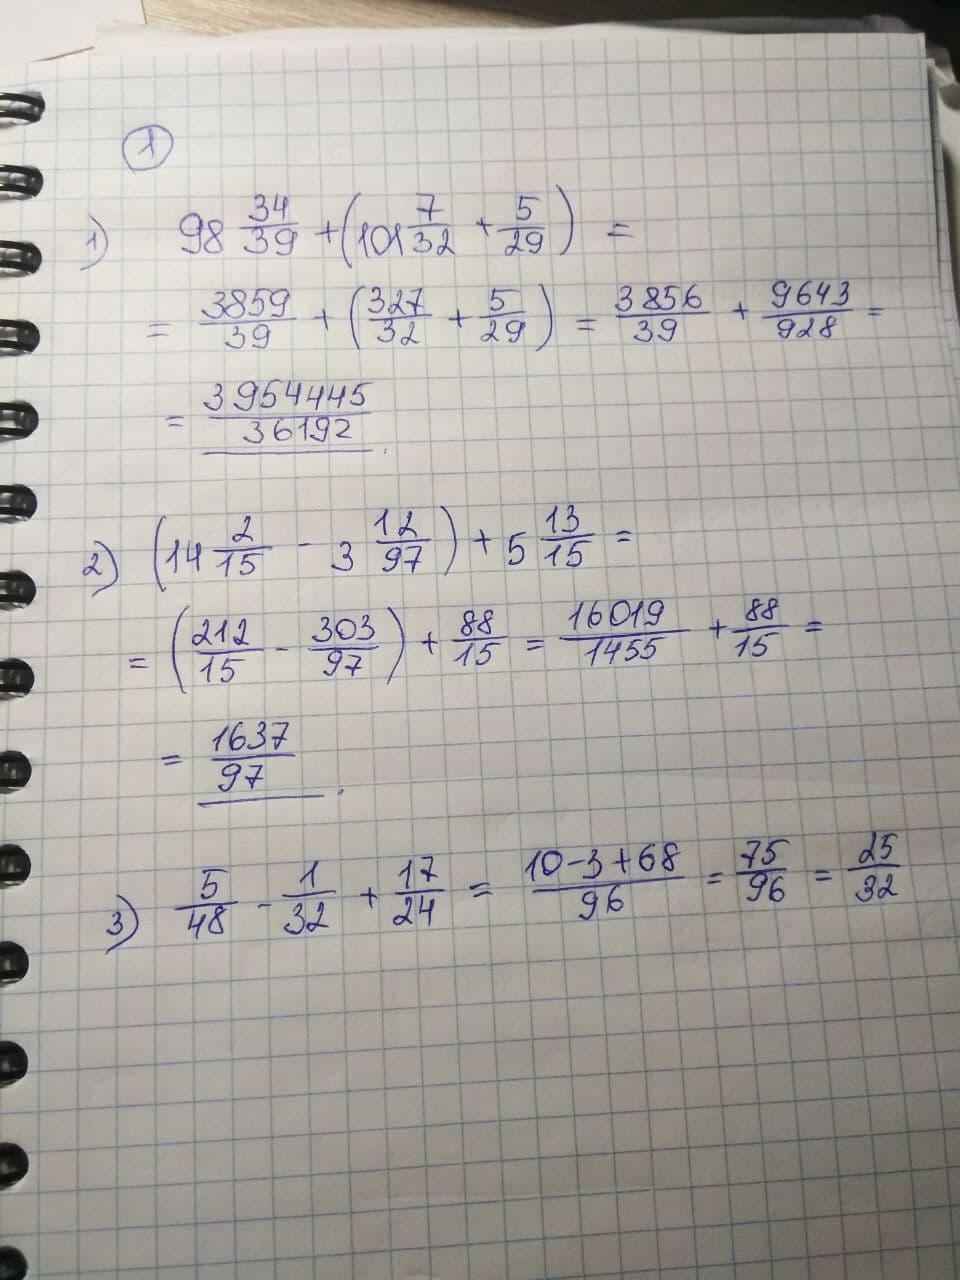 1
1) 98 34/39 + (101 7/32 + 5/29) =
= 3859/39 + (327/32 + 5/29) = 3856/39 + 9643/928 =
= 3954445/36192.
2) (14 2/15 - 3 12/97) + 5 13/15 =
= (212/15 - 303/97) + 88/15 = 16019/1455 + 88/15 =
= 1637/97.
3) 5/48 - 1/32 + 17/24 = 10-3+68/96 = 75/96 = 25/32